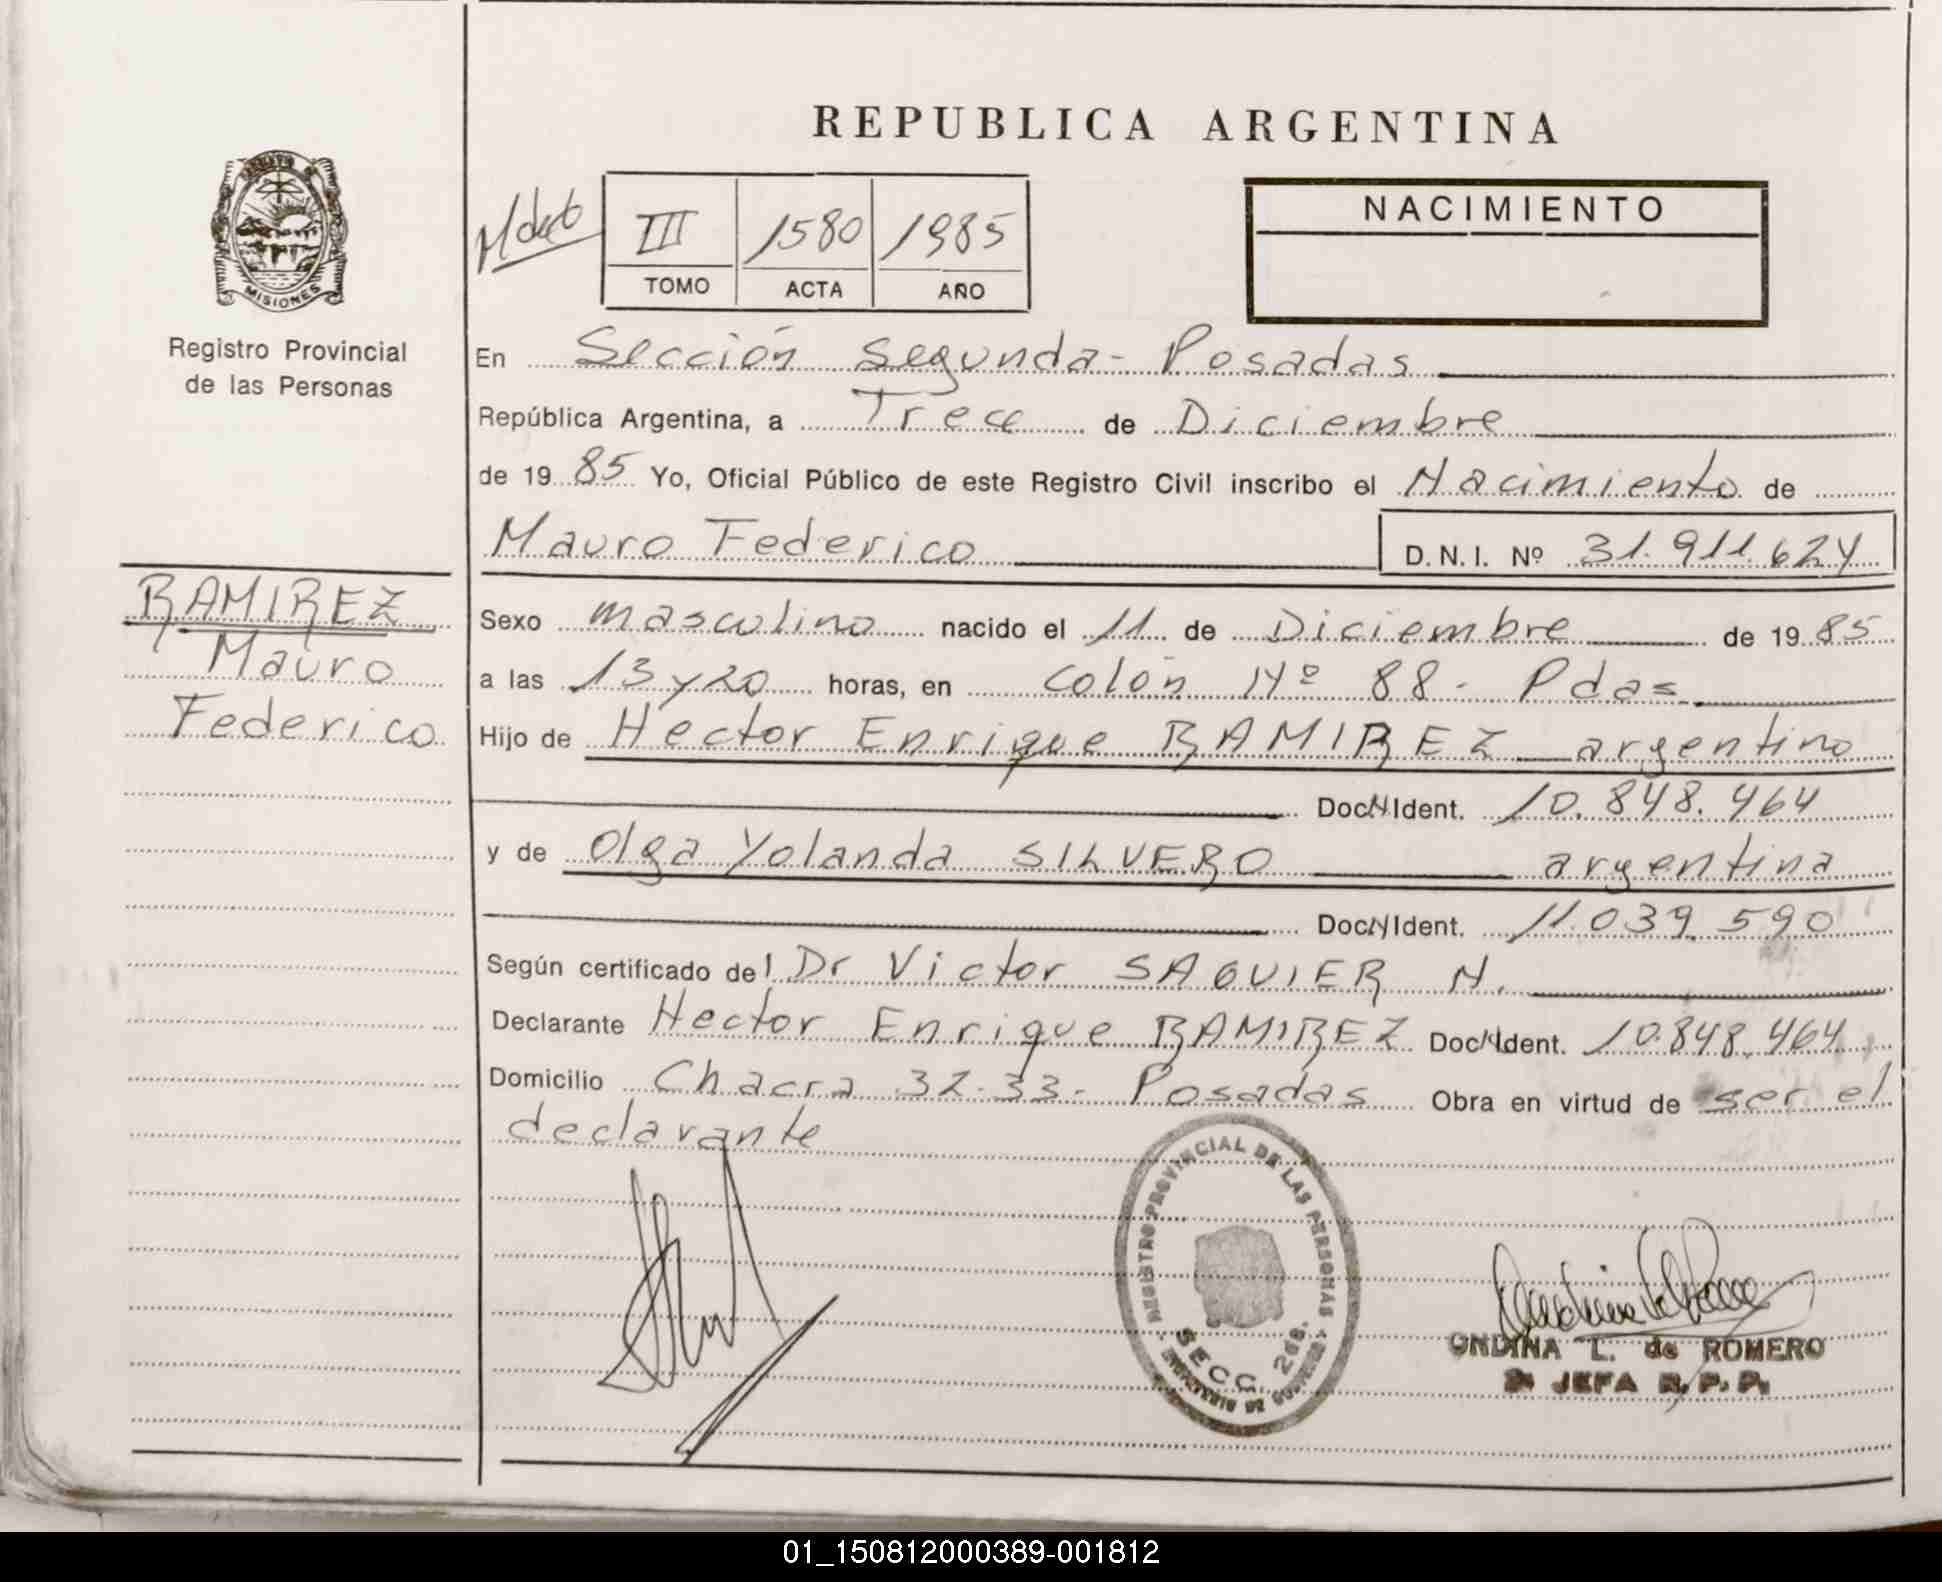 REPUBLICA ARGENTINA
MISIONES
Registro Provincial
de las Personas
III 1580 1985
TOMO ACTA AÑO
NACIMIENTO
En Sección Segunda - Posadas
República Argentina, a Trece de Diciembre
de 19 85 Yo, Oficial Público de este Registro Civil inscribo el Nacimiento de
Mauro Federico D.N.I. Nº 31.911.624
RAMIREZ
Mauro
Federico
Sexo masculino nacido el 11 de Diciembre de 19 85
a las 13 y 20 horas, en Colón Nº 88 - Pdas
Hijo de Hector Enrique RAMIREZ argentino
Doc. Ident. 10.848.464
y de Olga Yolanda SILVERO argentina
Doc. Ident. 11.039.590
Según certificado del Dr Victor SAGUIER N.
Declarante Hector Enrique RAMIREZ Doc. Ident. 10.848.464
Domicilio Chacra 32-33 - Posadas Obra en virtud de ser el
declarante
REGISTRO PROVINCIAL DE LAS PERSONAS
SECC. 2da.
MINISTERIO DE GOBIERNO
ONDINA L. de ROMERO
JEFA R.P.P.
01_150812000389-001812